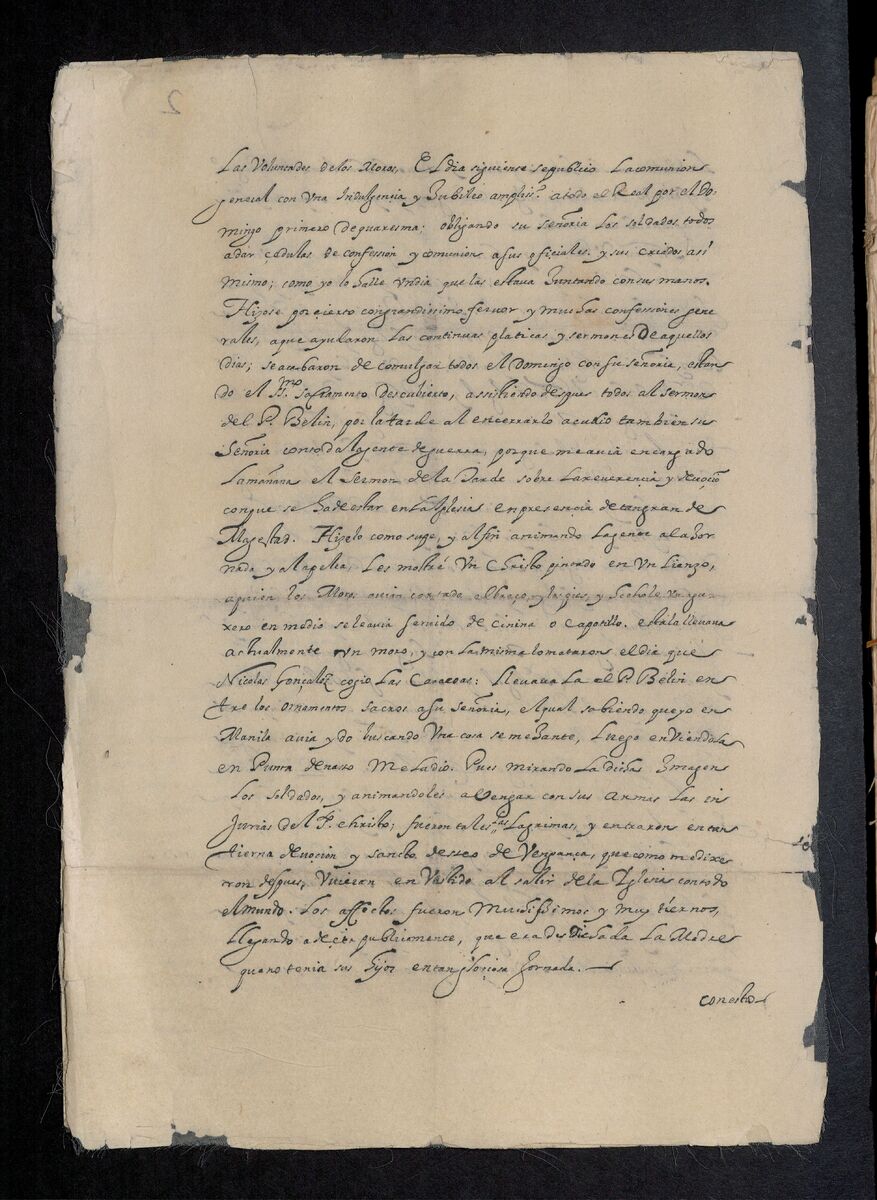 Las Voluntades delos Moros, El dia siguiense sepublico Lacomunion
general con Una Indulgençia y Jubileo amplis.º atodo el Real por el Do-
mingo primero dequaresma: obligando su señoria Los soldados todos
adar çedulas de confession y comunion asus ofiçiales y sus criados asi
mismo; como yo lo halle undia que las estava Juntando consus manos.
Hizose por çierto congrandissimo feruor y muchas confessiones gene
rales, aque ayudaron Las continuas platicas y sermones De aquellos
dias; seacabaron de comulgar todos el Domingo consu señoria, estan
do el S.mo sacramento descubierto, assistiendo despues todos al sermon
del P. Belin, por la tarde al encerrarlo acudio tambien su
Señoria contoda lagente deguerra, porque meauia encargado
Lamañana el sermon dela Tarde sobre Lareuerençia y deuoçiõ
conque se hadeestar enLaIglesia enpresençia detangran de
Magestad. Hizelo como supe, y alfin animando Lagente ala Jor
nada y alapelea, Les mostré Un Christo pintado en Un Lienzo,
aquien los Moros auian cortado elbraço, y los pies, y
xero en medio seleauia seruido de çinina o capotillo. estala lleuaua
actualmente un moro, y con La misma lomataron el dia que
Nicolas Gonçalez cogio Las Caracoas: lleuaua La el P. Belin en
tre los ornamentos sacros asu señoria, el qual sabiendo queyo en
Manila auia ydo buscando Una cosa semejante, Luego enViendola
en Punta denasso Meladio. Pues mirando La dicha Imagen
Los soldados, y animandoles aVengar consus armas Las in
Jurias del S. Christo; fueron tales las Lagrimas, y entraron entan
tierna deuoçion y sancto desseo de Vengança, que como medixe
ron despues, Vuieran enVestido al salir dela Iglesia contodo
elmundo. Los affectos fueron Muchissimos y muy tiernos,
llegando adeçir publicamente, que era desdichada La Madre
queno tenia sus hijos entan gloriosa Jornada.
con esto